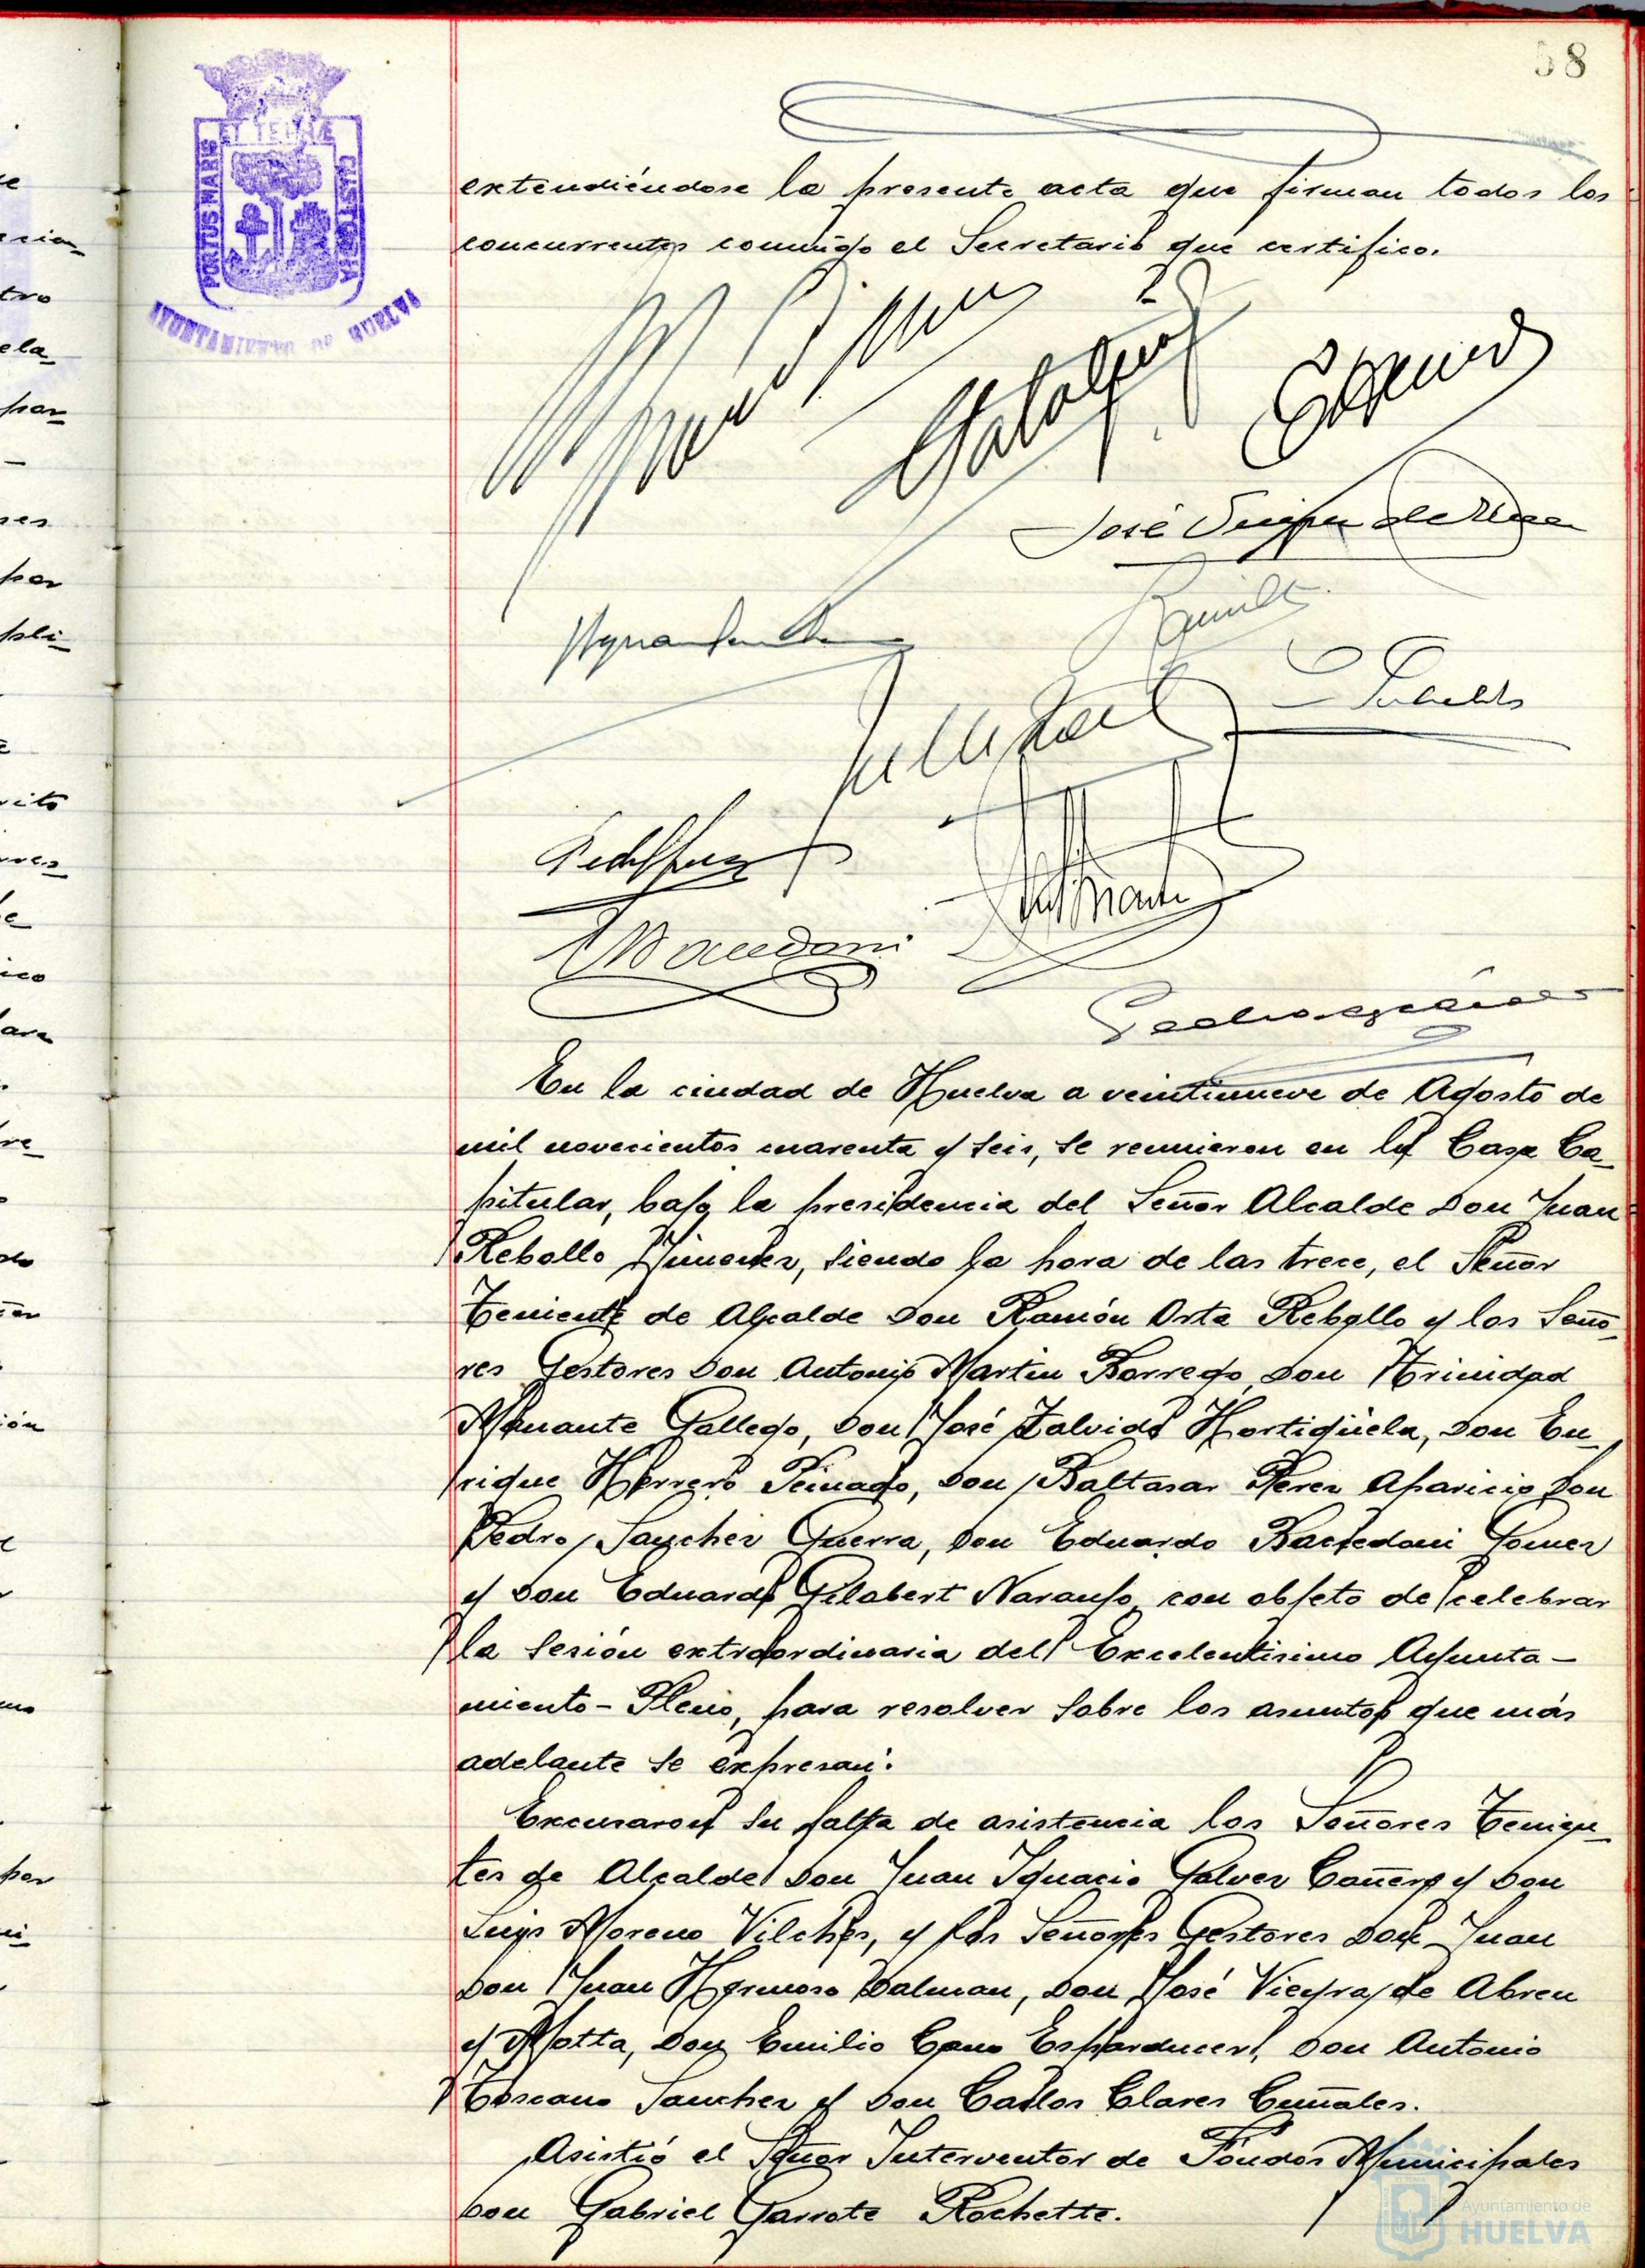 58
PORTUS MARIS
ET TERRAE
CUSTODIA
AYUNTAMIENTO DE HUELVA
extendiéndose la presente acta que firman todos los
concurrentes conmigo el Secretario que certifico.
José
En la ciudad de Huelva a veintinueve de Agosto de
mil novecientos cuarenta y seis, se reunieron en la Casa Ca-
pitular, bajo la presidencia del Señor Alcalde Don Juan
Rebollo Jimenez, siendo la hora de las trece, el Señor
Teniente de Alcalde Don Ramón Orta Rebollo y los Seño-
res Gestores Don Antonio Martin Borrego, Don Trinidad
Gallego, Don José Zalvide Hortigüela, Don En-
rique Herrero Peinado, Don Baltasar Perez Aparicio Don
Pedro Sanchez Guerra, Don Eduardo Gomez
y Don Eduardo Gilabert Naranjo, con objeto de celebrar
la sesión extraordinaria del Excelentisimo Ayunta-
miento-Pleno, para resolver sobre los asuntos que más
adelante se expresan.
Excusaron su falta de asistencia los Señores Tenien-
tes de Alcalde Don Juan Ignacio Galvez Cañero y Don
Luis Moreno Vilches, y los Señores Gestores Don Juan
Don Juan Hermoso Dalman, Don José Vieyra de Abreu
y Motta, Don Emilio Cano Don Antonio
Toscano Sanchez y Don Carlos Clares
Asistió el Señor Interventor de Fondos Municipales
Don Gabriel Garrote Rochette.
Ayuntamiento de
HUELVA